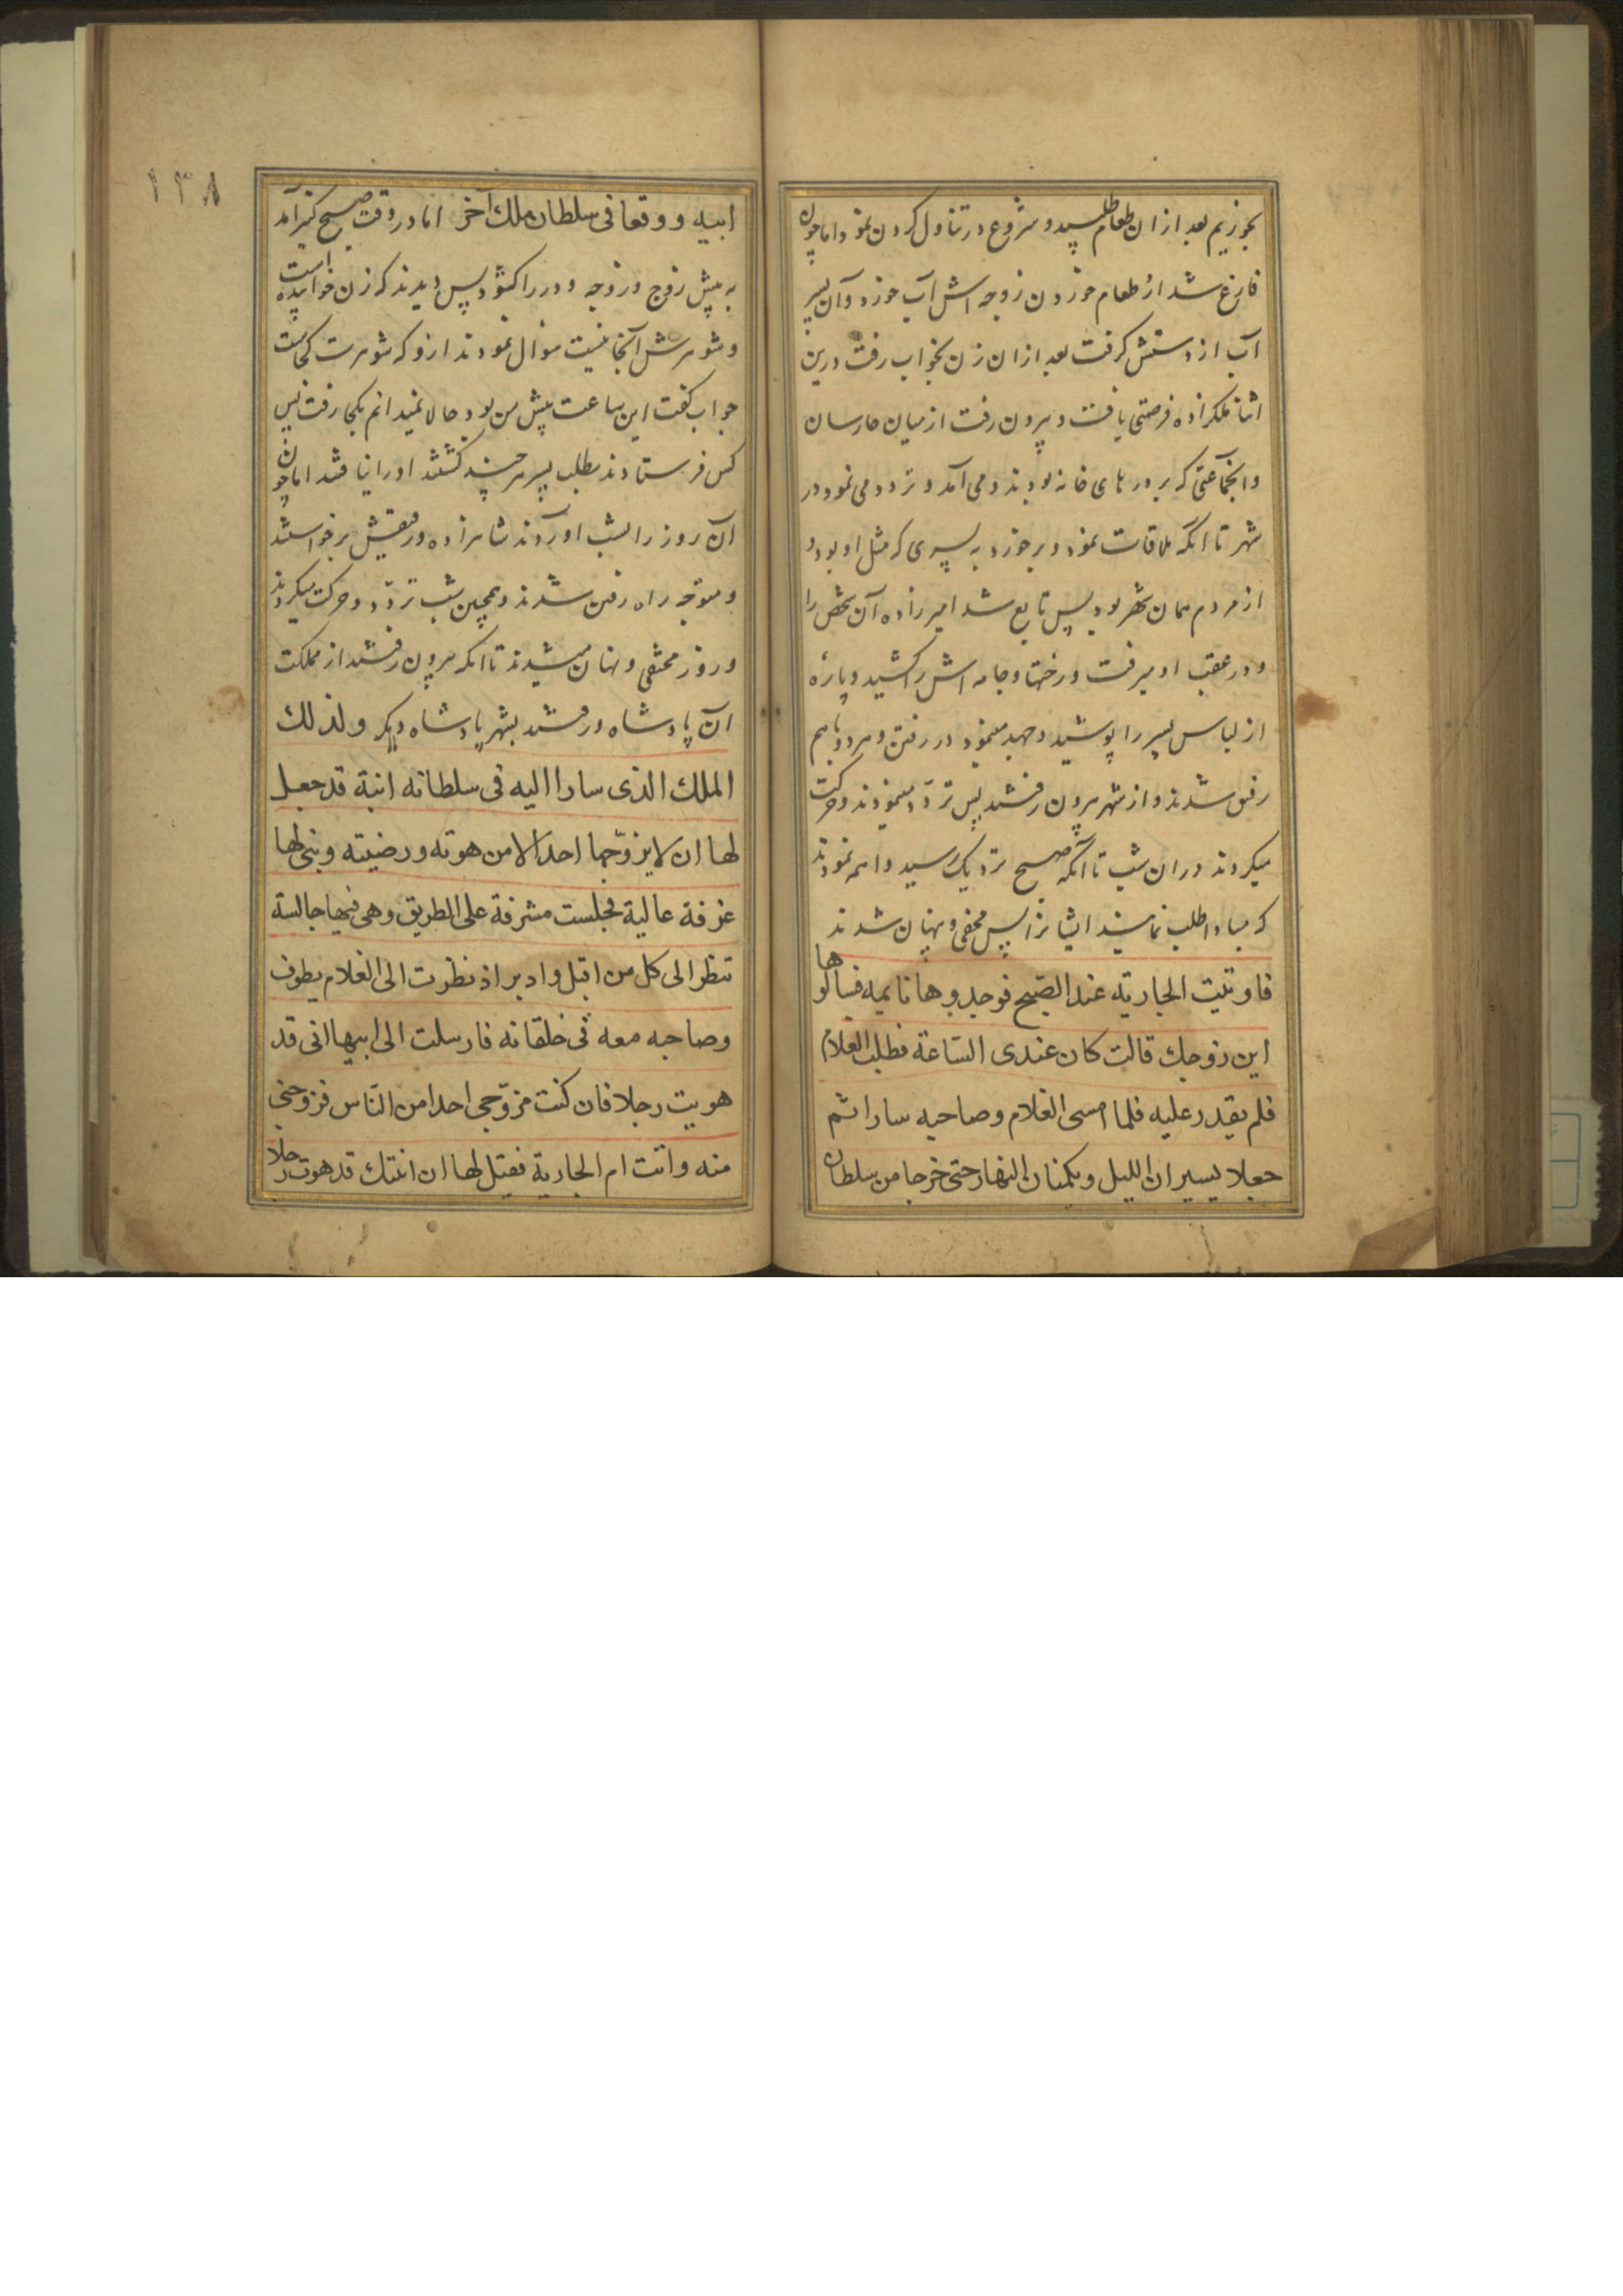 بخوریم بعد از ان طعام طلبید و شروع در تناول کردن نمود اما چون
فارغ شد از طعام خوردن زوجه اش آب خورد و آن پسر
آب از دستش کرفت بعد از ان زن بخواب رفت درین
اثنا ملکزاده فرصتی یافت و بیرون رفت از میان حارسان
و انجماعتی که بر درهای خانه بودند و می آمد و تردد می نمود در
شهر تا انکه ملاقات نمود و برخورد به پسری که مثل او بود و
از مردم همان شهر بود پس تابع شد امیرزاده آن شخص را
و در عقب او میرفت و رختها و جامه اش را کشید و پارهٔ
از لباس پسر را پوشید و جهد مینمود در رفتن و هر دو با هم
رفیق شدند و از شهر بیرون رفتند پس تردد مینمودند و حرکت
میکردند در ان شب تا آنکه صبح نزدیک رسید واهمه نمودند
که مبادا طلب نمایند ایشانرا پس مخفی و پنهان شدند
فاوتیت الجاریة عند الصبح فوجدوها نایمه فسالوها
این زوجك قالت کان عندی الساعة فطلب الغلام
فلم یقدر علیه فلما امسی الغلام وصاحبه سارا ثم
جعلا یسیران اللیل ویکمنان النهار حتی خرجا من سلطان
١٣٨
ابیه ووقعا فی سلطان ملك آخر اما در وقت صبح کنیز آمد
به پیش زوج و زوجه و در را کشود پس دیدند که زن خوابیده است
و شوهرش آنجا نیست سوال نمودند ازو که شوهرت کجاست
جواب کفت این ساعت پیش من بود حالا نمیدانم بکجا رفت پس
کس فرستادند بطلب پسر هر چند کشتند او را نیافتند اما چون
آن روز را بشب اوردند شاهزاده و رفیقش برخواستند
و متوجه راه رفتن شدند و همچنین شب تردد و حرکت میکردند
و روز مختفی و پنهان میشدند تا انکه بیرون رفتند از مملکت
آن پادشاه و رفتند بشهر پادشاه دیکر ولذلك
الملك الذی سارا الیه فی سلطانه ابنة قد جعل
لها ان لا یزوّجها احدا الا من هوته ورضیته وبنی لها
غرفة عالیة فجلست مشرفة علی الطریق وهی فیها جالسة
تنظر الی کل من اقبل وادبر اذ نظرت الی الغلام یطوف
وصاحبه معه فی خلقانه فارسلت الی ابیها انی قد
هویت رجلا فان کنت مزوّجی احدا من النّاس فزوجنی
منه واتت ام الجاریة فقیل لها ان ابنتك قد هوت رجلا